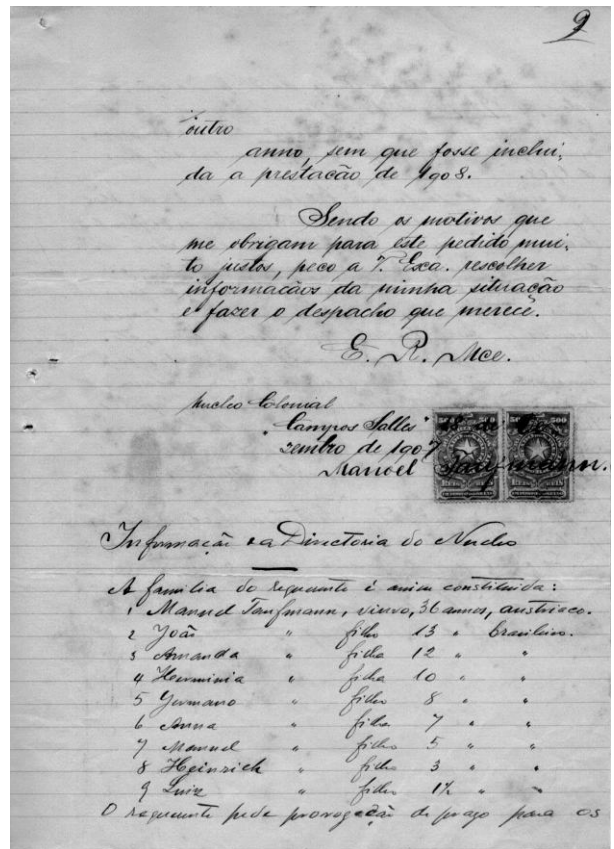 9
outro
anno, sem que fosse inclui,
da a prestacão de 1908.
Sendo os motivos que
me obrigam para este pedido mui,
to justos, peco a V. Exca. rescolher
informacãos da minha situação
e fazer o despacho que merece.
E. R. Mce.
Nucleo Colonial
"Campos Salles" 18 de De
zembro de 1907
Manoel Taufmann.
500 500
Informação da Directoria do Nucleo
A familia do requerente é assim constituida:
1 Manuel Taufmann, viuvo, 36 annos, austriaco.
2 João " filho 13 " brasileiro.
3 Amanda " filha 12 " "
4 Herminia " filha 10 " "
5 Germano " filho 8 " "
6 Anna " filha 7 " "
7 Manuel " filho 5 " "
8 Heinrich " filho 3 " "
9 Luiz " filho 1½ " "
O requerente pede prorogação de prazo para os